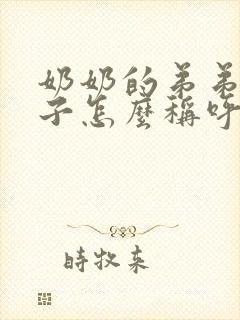 奶奶的弟弟
子怎麼稱呼
時牧來